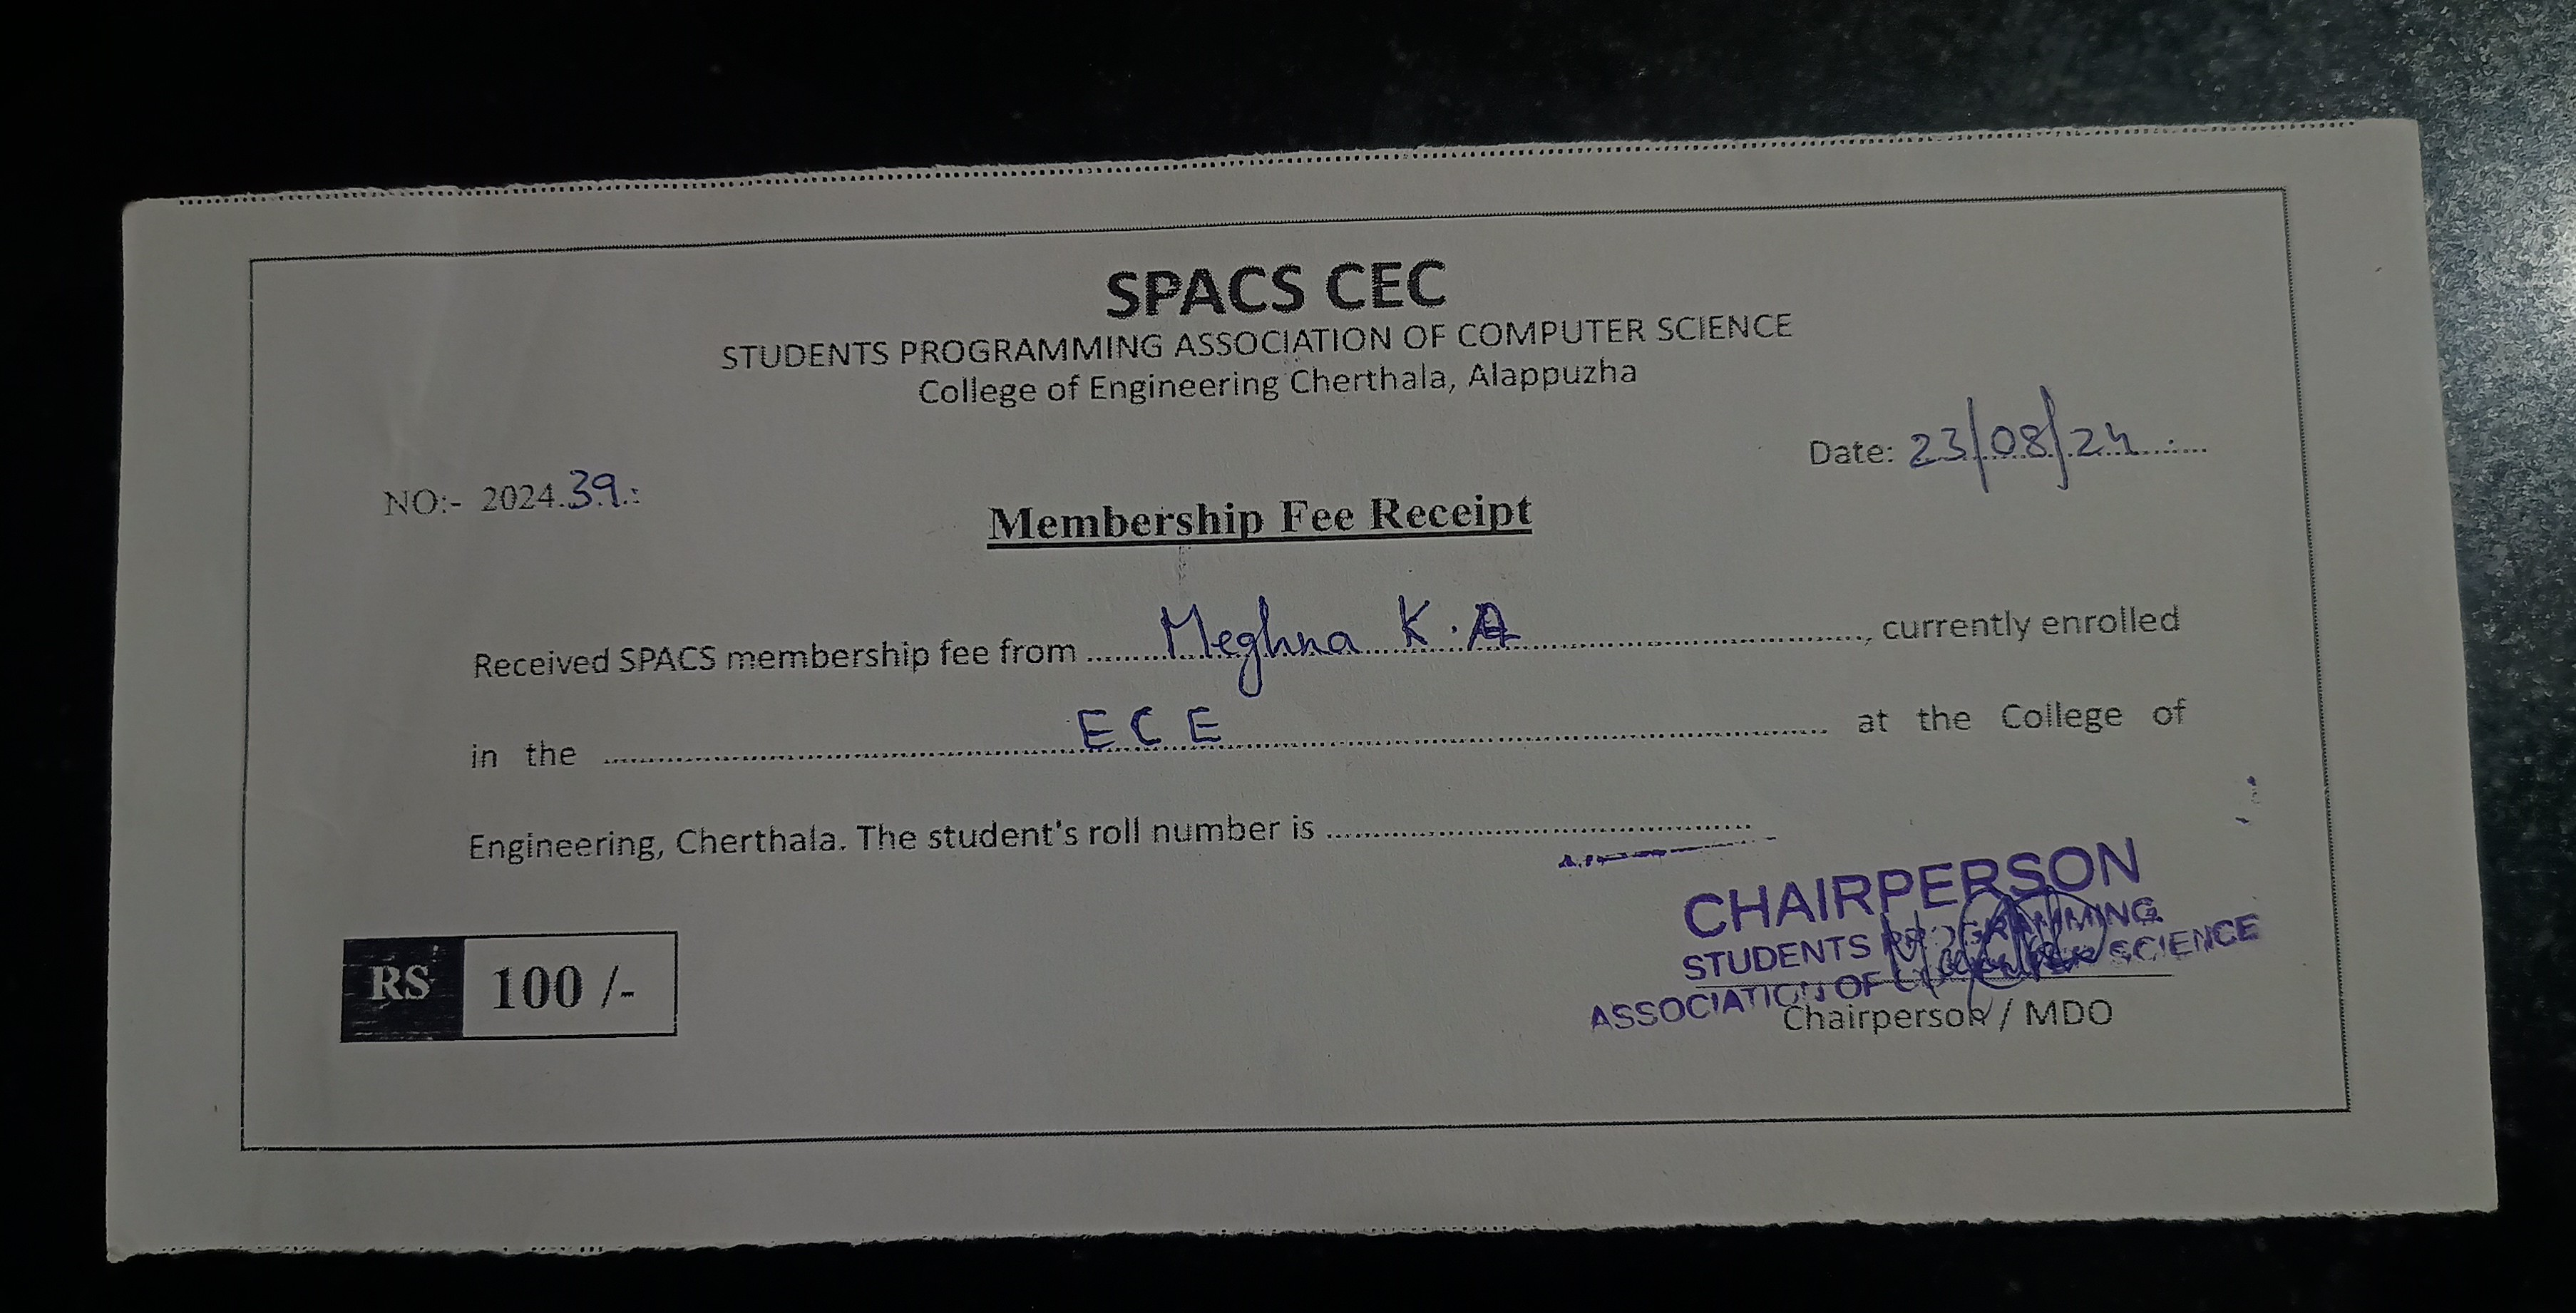 SPACS CEC
STUDENTS PROGRAMMING ASSOCIATION OF COMPUTER SCIENCE
College of Engineering Cherthala, Alappuzha
Date: 23/08/24
NO:- 2024.39
Membership Fee Receipt
Received SPACS membership fee from Meghna K.A, currently enrolled
in the ECE at the College of
Engineering, Cherthala. The student's roll number is
CHAIRPERSON
STUDENTS PROGRAMMING
ASSOCIATION OF COMPUTER SCIENCE
RS 100 /-
Chairperson / MDO